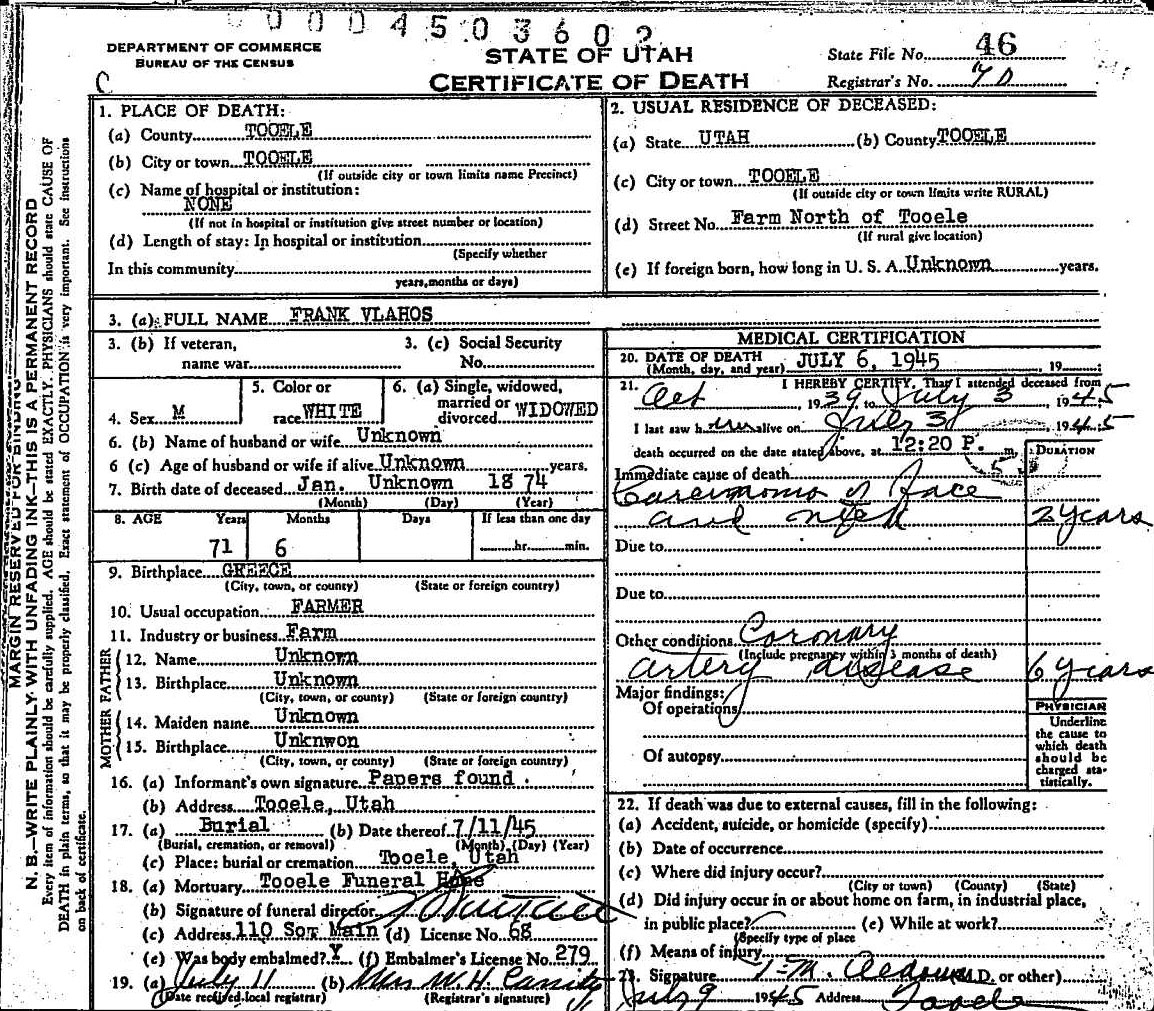 0 0 0 4 5 0 3 6 0 2
DEPARTMENT OF COMMERCE
BUREAU OF THE CENSUS
C
STATE OF UTAH
CERTIFICATE OF DEATH
State File No. 46
Registrar's No. 70
MARGIN RESERVED FOR BINDING
N. B.—WRITE PLAINLY WITH UNFADING INK—THIS IS A PERMANENT RECORD
Every item of information should be carefully supplied. AGE should be stated EXACTLY. PHYSICIANS should state CAUSE OF
DEATH in plain terms, so that it may be properly classified. Exact statement of OCCUPATION is very important. See instructions
on back of certificate.
1. PLACE OF DEATH:
(a) County TOOELE
(b) City or town TOOELE
(If outside city or town limits name Precinct)
(c) Name of hospital or institution:
NONE
(If not in hospital or institution give street number or location)
(d) Length of stay: In hospital or institution
(Specify whether
In this community
years, months or days)
2. USUAL RESIDENCE OF DECEASED:
(a) State UTAH (b) County TOOELE
(c) City or town TOOELE
(If outside city or town limits write RURAL)
(d) Street No. Farm North of Tooele
(If rural give location)
(e) If foreign born, how long in U. S. A. Unknown years.
3. (a) FULL NAME FRANK VLAHOS
3. (b) If veteran,
name war
3. (c) Social Security
No.
4. Sex M
5. Color or
race WHITE
6. (a) Single, widowed,
married or
divorced WIDOWED
6. (b) Name of husband or wife Unknown
6 (c) Age of husband or wife if alive Unknown years.
7. Birth date of deceased Jan. Unknown 1874
(Month) (Day) (Year)
8. AGE Years Months Days If less than one day
71 6 hr. min.
9. Birthplace GREECE
(City, town, or county) (State or foreign country)
10. Usual occupation FARMER
11. Industry or business Farm
FATHER
12. Name Unknown
13. Birthplace Unknown
(City, town, or county) (State or foreign country)
MOTHER
14. Maiden name Unknown
15. Birthplace Unknwon
(City, town, or county) (State or foreign country)
16. (a) Informant's own signature Papers found .
(b) Address Tooele, Utah
17. (a) Burial (b) Date thereof 7/11/45
(Burial, cremation, or removal) (Month) (Day) (Year)
(c) Place: burial or cremation Tooele, Utah
18. (a) Mortuary Tooele Funeral Home
(b) Signature of funeral director
(c) Address 110 Sox Main (d) License No. 68
(e) Was body embalmed? Y (f) Embalmer's License No. 279
19. (a) July 11 (b) Mrs W. H.
(Date received local registrar) (Registrar's signature)
MEDICAL CERTIFICATION
20. DATE OF DEATH
(Month, day, and year) JULY 6, 1945 19
21. I HEREBY CERTIFY, That I attended deceased from
Oct , 1939, to July 3 1945
I last saw him alive on July 3 1945
death occurred on the date stated above, at 12:20 P. m.
DURATION
Immediate cause of death
Carcinoma of face
and neck 2 years
Due to
Due to
Other conditions Coronary
(Include pregnancy within 3 months of death)
artery disease 6 years
Major findings:
Of operations
Of autopsy
PHYSICIAN
Underline
the cause to
which death
should be
charged sta-
tistically.
22. If death was due to external causes, fill in the following:
(a) Accident, suicide, or homicide (specify)
(b) Date of occurrence
(c) Where did injury occur?
(City or town) (County) (State)
(d) Did injury occur in or about home on farm, in industrial place,
in public place? (e) While at work?
(Specify type of place
(f) Means of injury
23. Signature (M.D. or other)
July 9 1945 Address Tooele